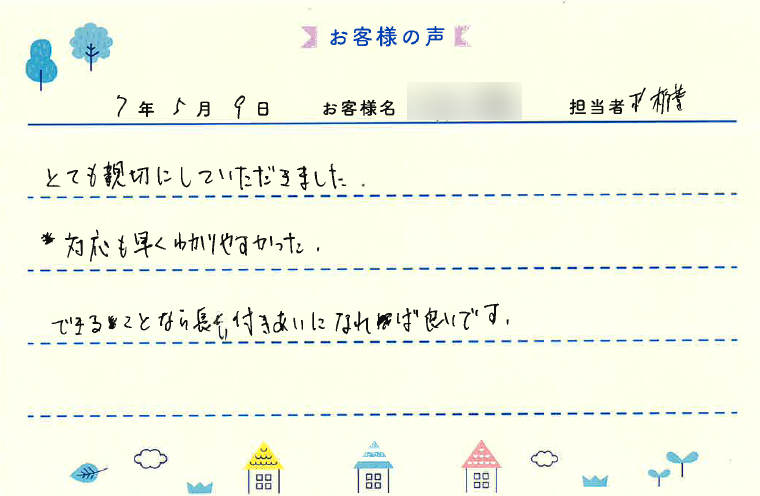 お客様の声
7年5月9日 お客様名 担当者
とても親切にしていただきました.
対応も早くわかりやすかった.
できることなら長い付きあいになれれば良いです.